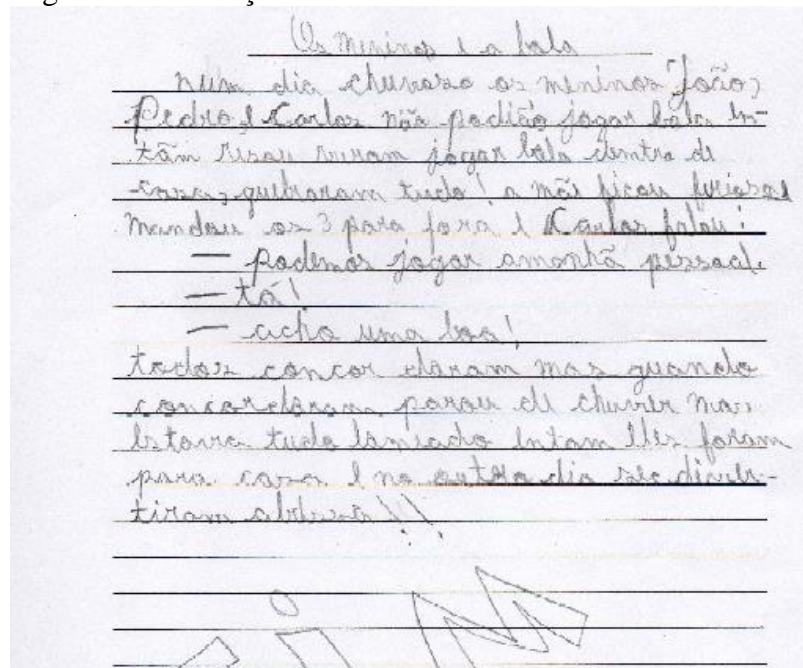 Os meninos e a bola
num dia chuvoso os meninos João,
Pedro, e Carlos não podião jogar bola in-
tãm risou viram jogar bola dentro de
casa, quebraram tudo! a mãe ficou furiosa e
mandou os 3 para fora e Carlos falou:
— podemos jogar amanhã pessoal.
— tá!
— acho uma boa!
todos concor daram mas quando
concordaram parou de chuver mas
estava tudo lameado intam eles foram
para casa e no outro dia sec diver-
tiram